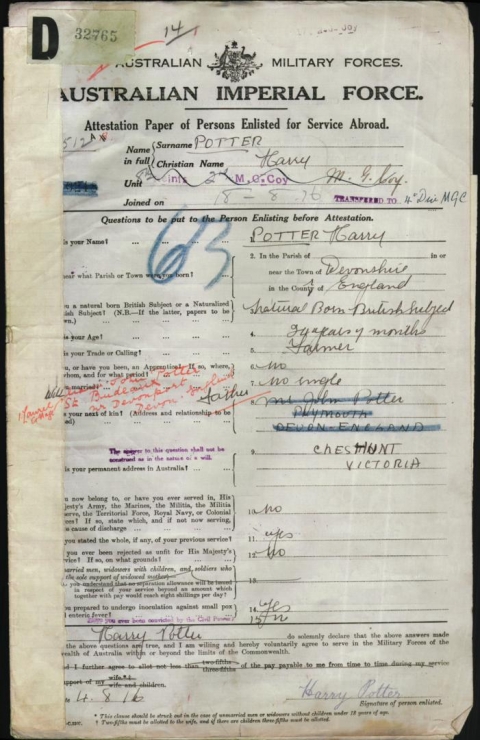 D 32765
14
AUSTRALIAN MILITARY FORCES.
AUSTRALIAN IMPERIAL FORCE.
Attestation Paper of Persons Enlisted for Service Abroad.
512A
Name in full { Surname POTTER
Christian Name Harry
Unit 2 M.G.Coy M. G. Coy.
TRANSFERRED TO 4th Div MGC
Joined on 18-8-16
Questions to be put to the Person Enlisting before Attestation.
63
is your Name? ... 1. POTTER Harry
near what Parish or Town were you born? 2. In the Parish of in or
near the Town of Devonshire
in the County of England
you a natural born British Subject or a Naturalized
British Subject? (N.B.—If the latter, papers to be
Natural Born British Subject
is your Age? 4. months
is your Trade or Calling? 5. Farmer
you, or have you been, an Apprentice? If so, where,
whom, and for what period? 6. No
married? 7. No single
John Potter
St Budeaux
nr Devonport
Devon England
Father
is your next of kin? (Address and relationship to be
8. Mr John Potter
PLYMOUTH
DEVON-ENGLAND
The answer to this question shall not be
construed as in the nature of a will.
is your permanent address in Australia? 9. CHESHUNT
VICTORIA
you now belong to, or have you ever served in, His
Majesty's Army, the Marines, the Militia, the Militia
Reserve, the Territorial Force, Royal Navy, or Colonial
Forces? If so, state which, and if not now serving,
cause of discharge 10. No
you stated the whole, if any, of your previous service? 11. yes
you ever been rejected as unfit for His Majesty's
Service? If so, on what grounds? 12. No
married men, widowers with children, and soldiers who
the sole support of widowed mother—
you understand that no separation allowance will be issued
in respect of your service beyond an amount which
together with pay would reach eight shillings per day? 13.
you prepared to undergo inoculation against small pox
and enteric fever? 14. Yes
you ever been convicted by the Civil Power? 15. No
Harry Potter do solemnly declare that the above answers made
the above questions are true, and I am willing and hereby voluntarily agree to serve in the Military Forces of the
Commonwealth of Australia within or beyond the limits of the Commonwealth.
And I further agree to allot not less than two-fifths three-fifths of the pay payable to me from time to time during my service
support of my wife wife and children.
4.8.16 Harry Potter
Signature of person enlisted.
* This clause should be struck out in the case of unmarried men or widowers without children under 18 years of age.
† Two-fifths must be allotted to the wife, and if there are children three-fifths must be allotted.